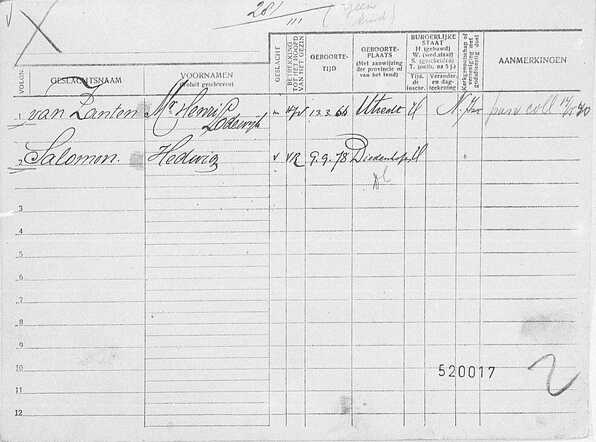 28/III (Geen kind)
VOLGN.
GESLACHTSNAAM
VOORNAMEN
(Voluit geschreven)
GESLACHT
BETREKKING TOT HET HOOFD VAN HET GEZIN
GEBOORTE-
TIJD
GEBOORTE-
PLAATS
(Met aanwijzing
der provincie of
van het land)
BURGERLIJKE
STAAT
H (gehuwd)
W (wed.staat)
S (gescheiden)
Tijd. d.
inschr.
Verander.
en dag-
teekening
Kerkgenootschap of
AANMERKINGEN
1 van Zanten Mr. Henri Lodewijk m 13.3.66 Utrecht H N. Isr
2 Salomon. Hedwig v VR 9.9.78 Diedenhofen H
Dl
3
4
5
6
7
8
9
10
11
12
520017
2